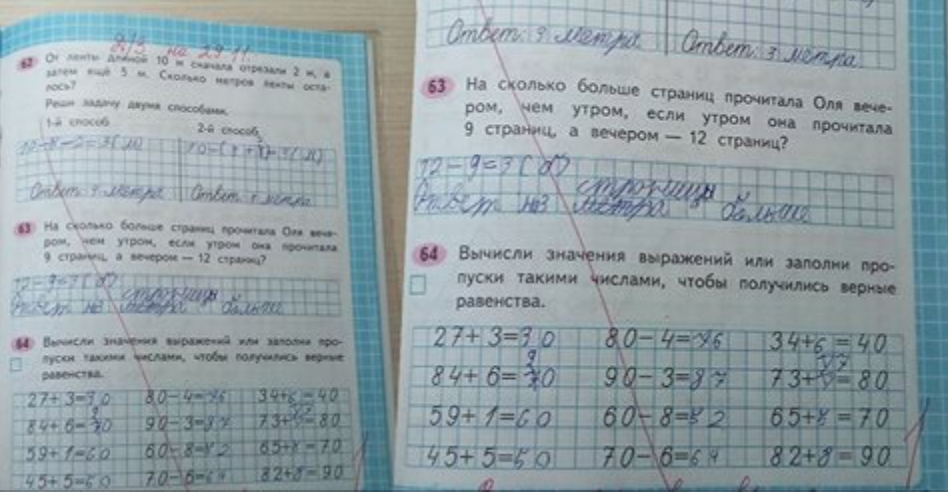 д/з на 29.11.
62 От ленты длиной 10 м сначала отрезали 2 м, а
затем ещё 5 м. Сколько метров ленты оста-
лось?
Реши задачу двумя способами.
1-й способ 2-й способ
Ответ: метра Ответ: метра
63 На сколько больше страниц прочитала Оля вече-
ром, чем утром, если утром она прочитала
9 страниц, а вечером — 12 страниц?
12-9=3
страницы
Ответ на3 метра больше
64 Вычисли значения выражений или заполни про-
пуски такими числами, чтобы получились верные
равенства.
27+3=30 80-4=76 34+6=40
84+6=90 90-3=87 73+7=80
59+1=60 60-8=52 65+ =70
45+5=50 70-6=64 82+8=90
Ответ: метра Ответ: 3 метра
63 На сколько больше страниц прочитала Оля вече-
ром, чем утром, если утром она прочитала
9 страниц, а вечером — 12 страниц?
12-9=3
страницы
Ответ на3 метра больше
64 Вычисли значения выражений или заполни про-
пуски такими числами, чтобы получились верные
равенства.
27+3=30 80-4=76 34+6=40
84+6=90 90-3=87 73+7=80
59+1=60 60-8=52 65+ =70
45+5=50 70-6=64 82+8=90